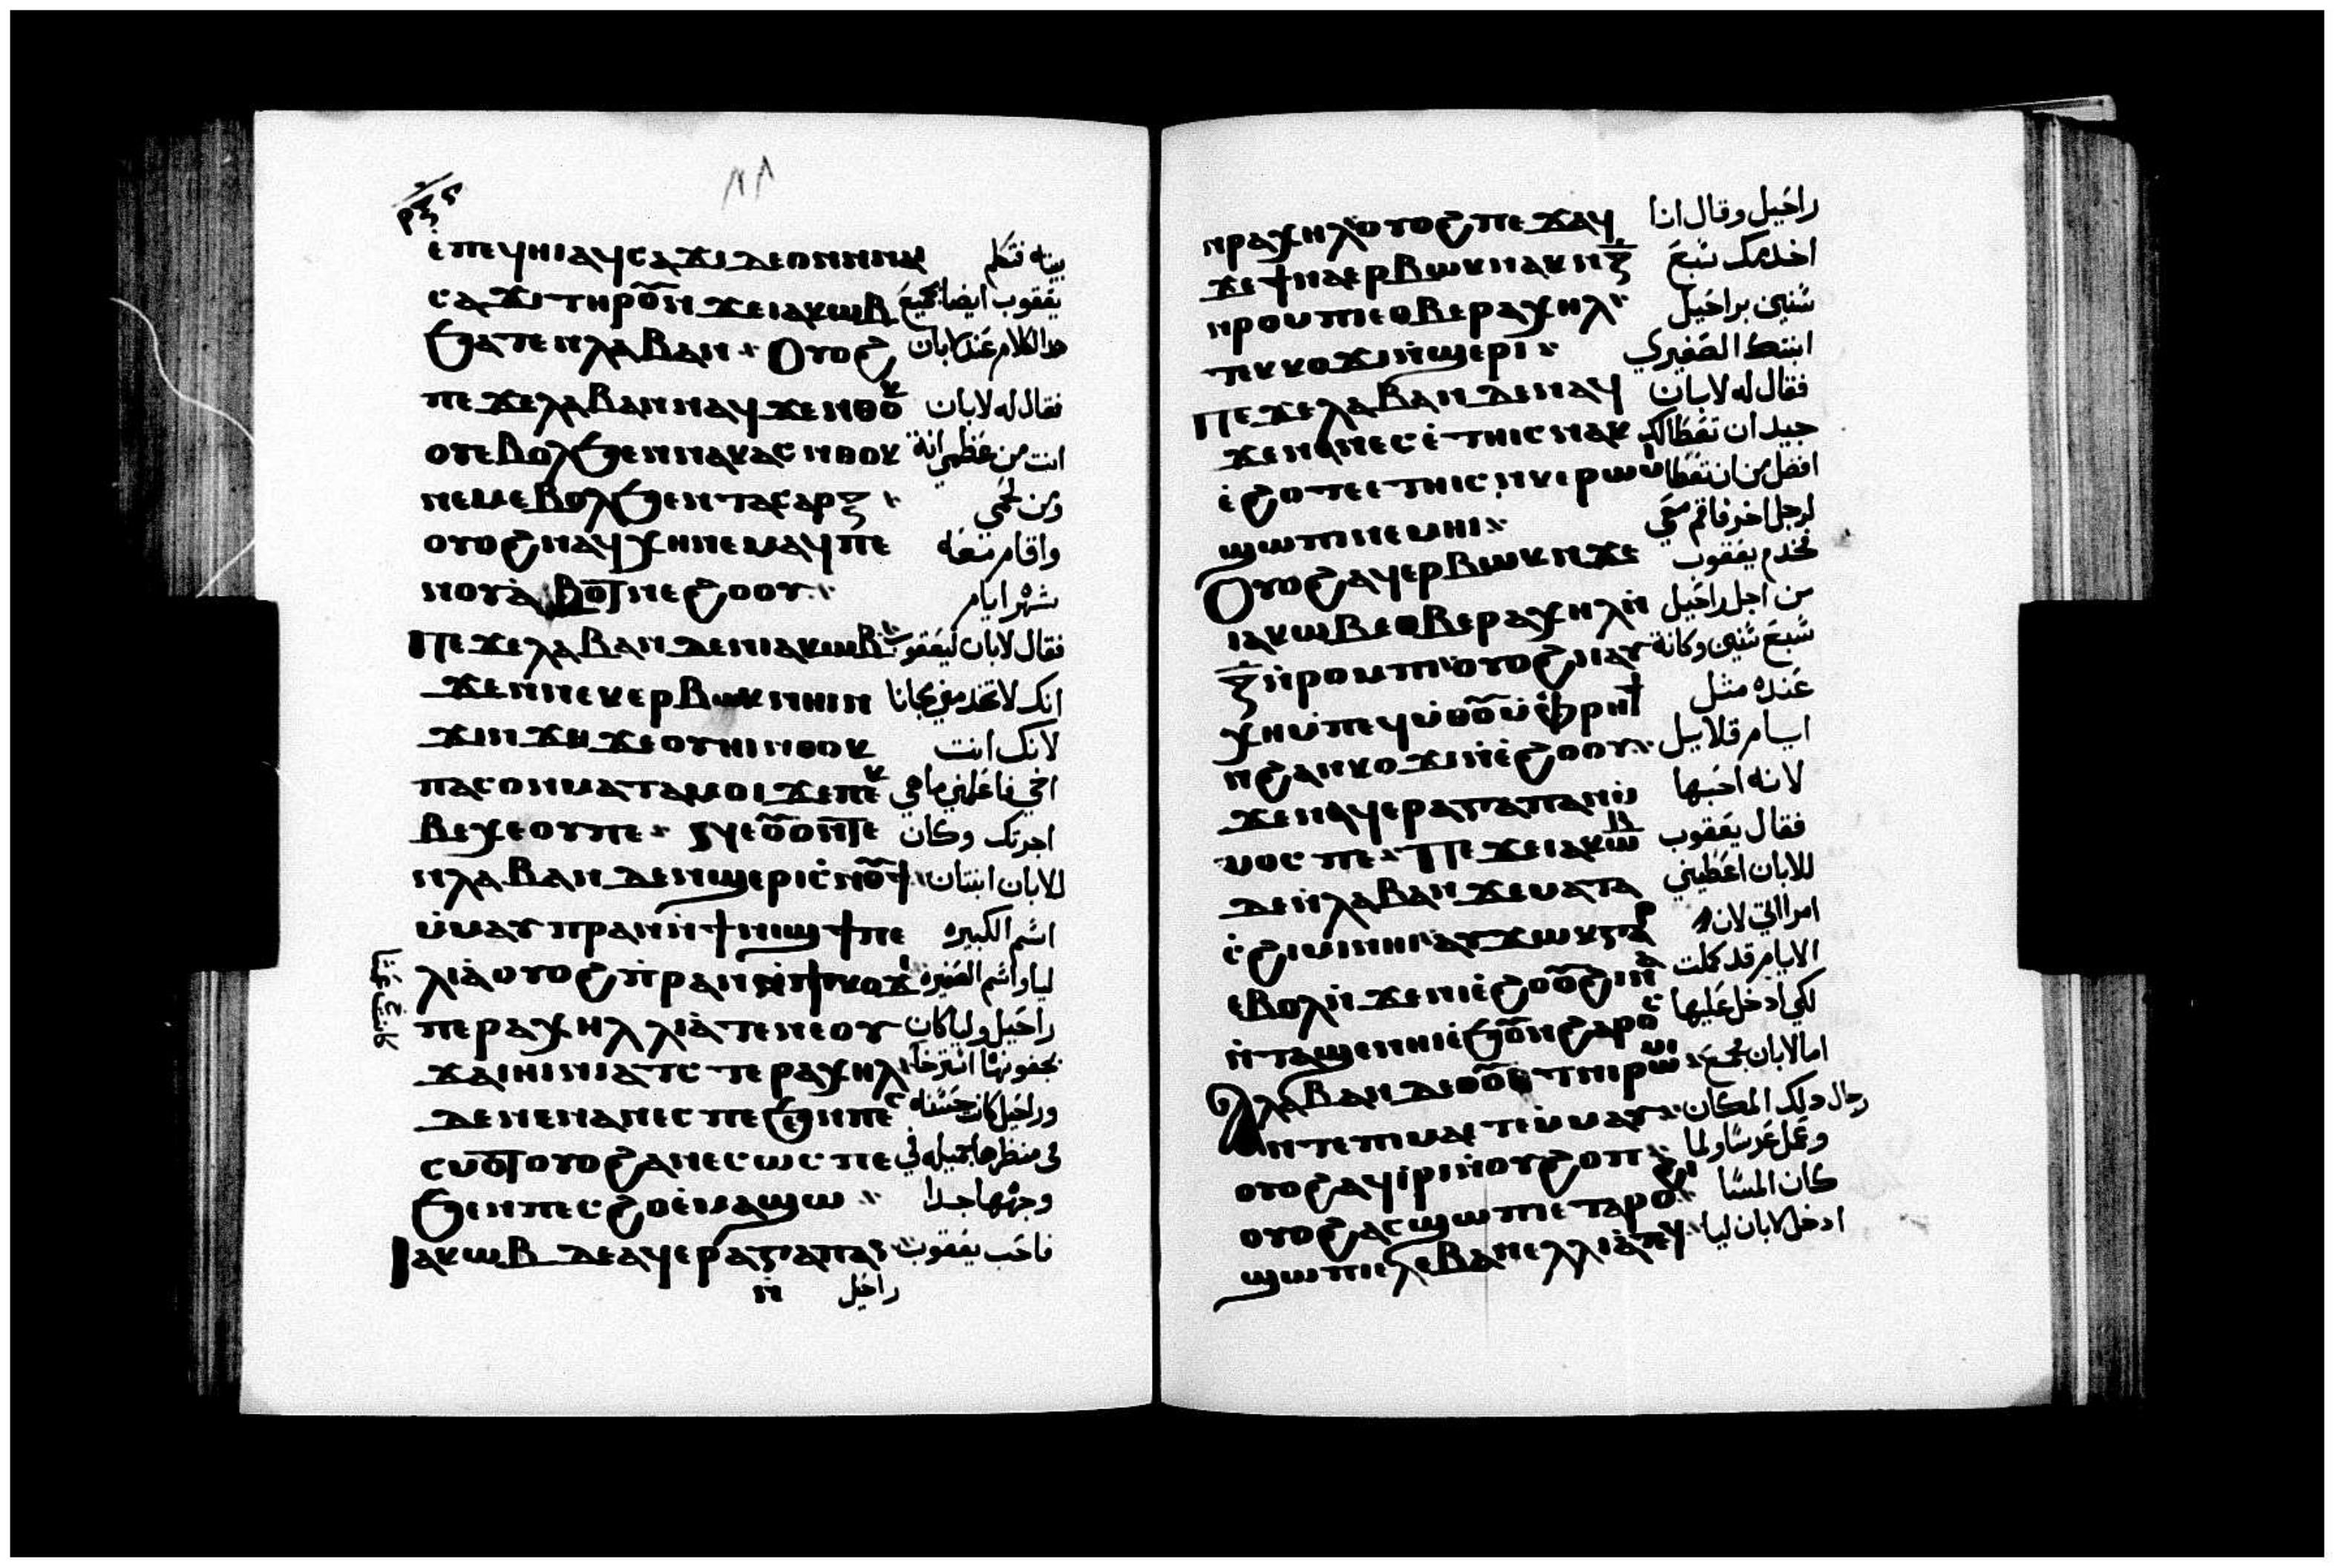 ⲣⲝⲋ
ⲉ̀ⲡⲉϥⲏⲓⲁϥⲥⲁϫⲓⲇⲉⲟⲛⲛⲛⲁⲓ بيته فتكلم
ⲥⲁϫⲓⲧⲏⲣⲟⲩⲛϫⲉⲓⲁⲕⲱⲃ يعقوب ايضا بجميع
ϧⲁⲧⲉⲛⲗⲁⲃⲁⲛ ⲟⲩⲟϩ هدا الكلام عند لابان
ⲡⲉϫⲉⲗⲁⲃⲁⲛⲛⲁϥϫⲉⲛⲑⲟⲕ فقال له لابان
ⲟⲩⲉⲃⲟⲗϧⲉⲛⲛⲁⲕⲁⲥⲛⲑⲟⲕ انت من عظمي انة
ⲛⲉⲙⲉⲃⲟⲗϧⲉⲛⲧⲁⲥⲁⲣⲝ ومن لحمي
ⲟⲩⲟϩⲛⲁϥⲭⲏⲛⲉⲙⲁϥⲡⲉ واقام معه
ⲛⲟⲩⲁ̀ⲃⲟⲧⲛⲉϩⲟⲟⲩ شهر ايام
ⲡⲉϫⲉⲗⲁⲃⲁⲛⲇⲉⲛⲓⲁⲕⲱⲃ فقال لابان ليعقوب
ϫⲉⲛⲛⲉⲕⲉⲣⲃⲱⲕⲛⲏⲓⲛ انك لا تخدمني مجانا
ϫⲓⲛϫⲏϫⲉⲟⲩⲏⲓⲛⲑⲟⲕ لانك انت
ⲡⲁⲥⲟⲛⲙⲁⲧⲁⲙⲟⲓϫⲉⲡⲉⲕ اخي فاعلمني ما هي
ⲃⲉⲭⲉⲟⲩⲡⲉ ⲛⲉⲟⲩⲟⲛⲧⲉ اجرتك وكان
ⲛⲗⲁⲃⲁⲛⲇⲉⲛϣⲉⲣⲓⲥ̀ⲛⲟⲩϯ للابان ابنتان
ⲙ̀ⲙⲁⲩⲡⲣⲁⲛⲛ̀ϯⲛⲓϣϯⲡⲉ اسم الكبيره
ⲗⲓⲁ̀ⲟⲩⲟϩⲡ̀ⲣⲁⲛⲛ̀ϯⲕⲟⲩϫⲓ ليا واسم الصغيره
ⲡⲉⲣⲁⲭⲏⲗⲗⲓⲁ̀ⲧⲉⲛⲉⲟⲩ راحيل وليا كان
ϫⲁⲓⲛⲓⲛⲓⲁⲧⲥⲧⲉⲣⲁⲭⲏⲗ
ⲇⲉⲛⲉⲛⲁⲛⲉⲥⲡⲉϧⲉⲛⲡⲉⲥ وراحيل كانت حسنه
ⲥⲙⲟⲧⲟⲩⲟϩⲁⲛⲉⲥⲱⲥⲡⲉ في منظرها جميله في
ϧⲉⲛⲡⲉⲥϩⲟⲉ̀ⲙⲁϣⲱ وجهها جدا
ⲓⲁⲕⲱⲃⲇⲉⲁϥⲉⲣⲁⲅⲁⲡⲁⲛ فاحب يعقوب
ⲛ̀ راحيل
ⲛⲣⲁⲭⲏⲗⲟⲩⲟϩⲡⲉϫⲁϥ راحيل وقال انا
ϫⲉϯⲛⲁⲉⲣⲃⲱⲕⲛⲁⲕⲛⲍ̅ اخدمك سبع
ⲛⲣⲟⲙⲡⲓⲉⲑⲃⲉⲣⲁⲭⲏⲗ سنين براحيل
ⲧⲉⲕⲕⲟⲩϫⲓⲛ̀ϣⲉⲣⲓ ابنتك الصغيري
ⲡⲉϫⲉⲗⲁⲃⲁⲛⲇⲉⲛⲁϥ فقال له لابان
ϫⲉⲛⲁⲛⲉⲥⲉ̀ⲧⲏⲓⲥⲛⲁⲕ جيد ان تعطا لك
ⲉ̀ϩⲟⲧⲉⲉⲧⲏⲓⲥⲛⲕⲉⲣⲱⲙⲓ افضل من ان تعطا
ϣⲱⲡⲓⲛⲉⲙⲏⲓ لرجل اخر فاقم معي
ⲟⲩⲟϩⲁϥⲉⲣⲃⲱⲕⲛϫⲉ فخدم يعقوب
ⲓⲁⲕⲱⲃⲉⲑⲃⲉⲣⲁⲭⲏⲗⲛ̀ من اجل راحيل
ⲍ̅ⲛ̀ⲣⲟⲙⲡⲓⲟⲩⲟϩⲛⲁⲩ سبع سنين وكانة
ⲭⲏⲙ̀ⲡⲉϥⲙ̀ⲑⲟⲙ̀ⲫⲣⲏϯ عنده مثل
ⲛϩⲁⲛⲕⲟⲩϫⲓⲛ̀ⲉ̀ϩⲟⲟⲩ ايام قلايل
ϫⲉⲛⲁϥⲉⲣⲁⲅⲁⲡⲁⲛⲙ̀ لانه احبها
ⲙⲟⲥⲡⲉ ⲡⲉϫⲉⲓⲁⲕⲱⲃ فقال يعقوب
ⲇⲉⲛ̀ⲗⲁⲃⲁⲛϫⲉⲙⲁⲧⲁ للابان اعطيني
ⲥ̀ϩⲓⲙⲓⲛⲏⲓⲁⲩϫⲱⲕⲅⲁⲣ امراتي لان
ⲉⲃⲟⲗⲛ̀ϫⲉⲛⲓⲉ̀ϩⲟⲟⲩϩⲓⲛⲁ الايام قد كملت
ⲛ̀ⲧⲁϣⲉⲛⲏⲓⲉ̀ϧⲟⲩⲛϩⲁⲣⲟⲥ لكي ادخل عليها
ⲁⲗⲁⲃⲁⲛⲇⲉⲑⲟⲩⲉⲧⲛⲓⲣⲱⲙⲓ اما لابان فجمع
ⲛⲧⲉⲡⲓⲙⲁⲉⲧⲉⲙ̀ⲙⲁⲩ رجال دلك المكان
ⲟⲩⲟϩⲁϥⲓ̀ⲣⲓⲛ̀ⲟⲩϩⲟⲡ وعمل عرسا ولما
ⲟⲩⲟϩⲁⲥϣⲱⲡⲓⲉⲧⲁⲣⲟⲩϩⲓ كان المسا
ϣⲱⲡⲓⲉⲗⲉⲃⲁⲛⲉⲗⲗⲓⲁ̀ⲧⲉϥ ادخل لابان ليا